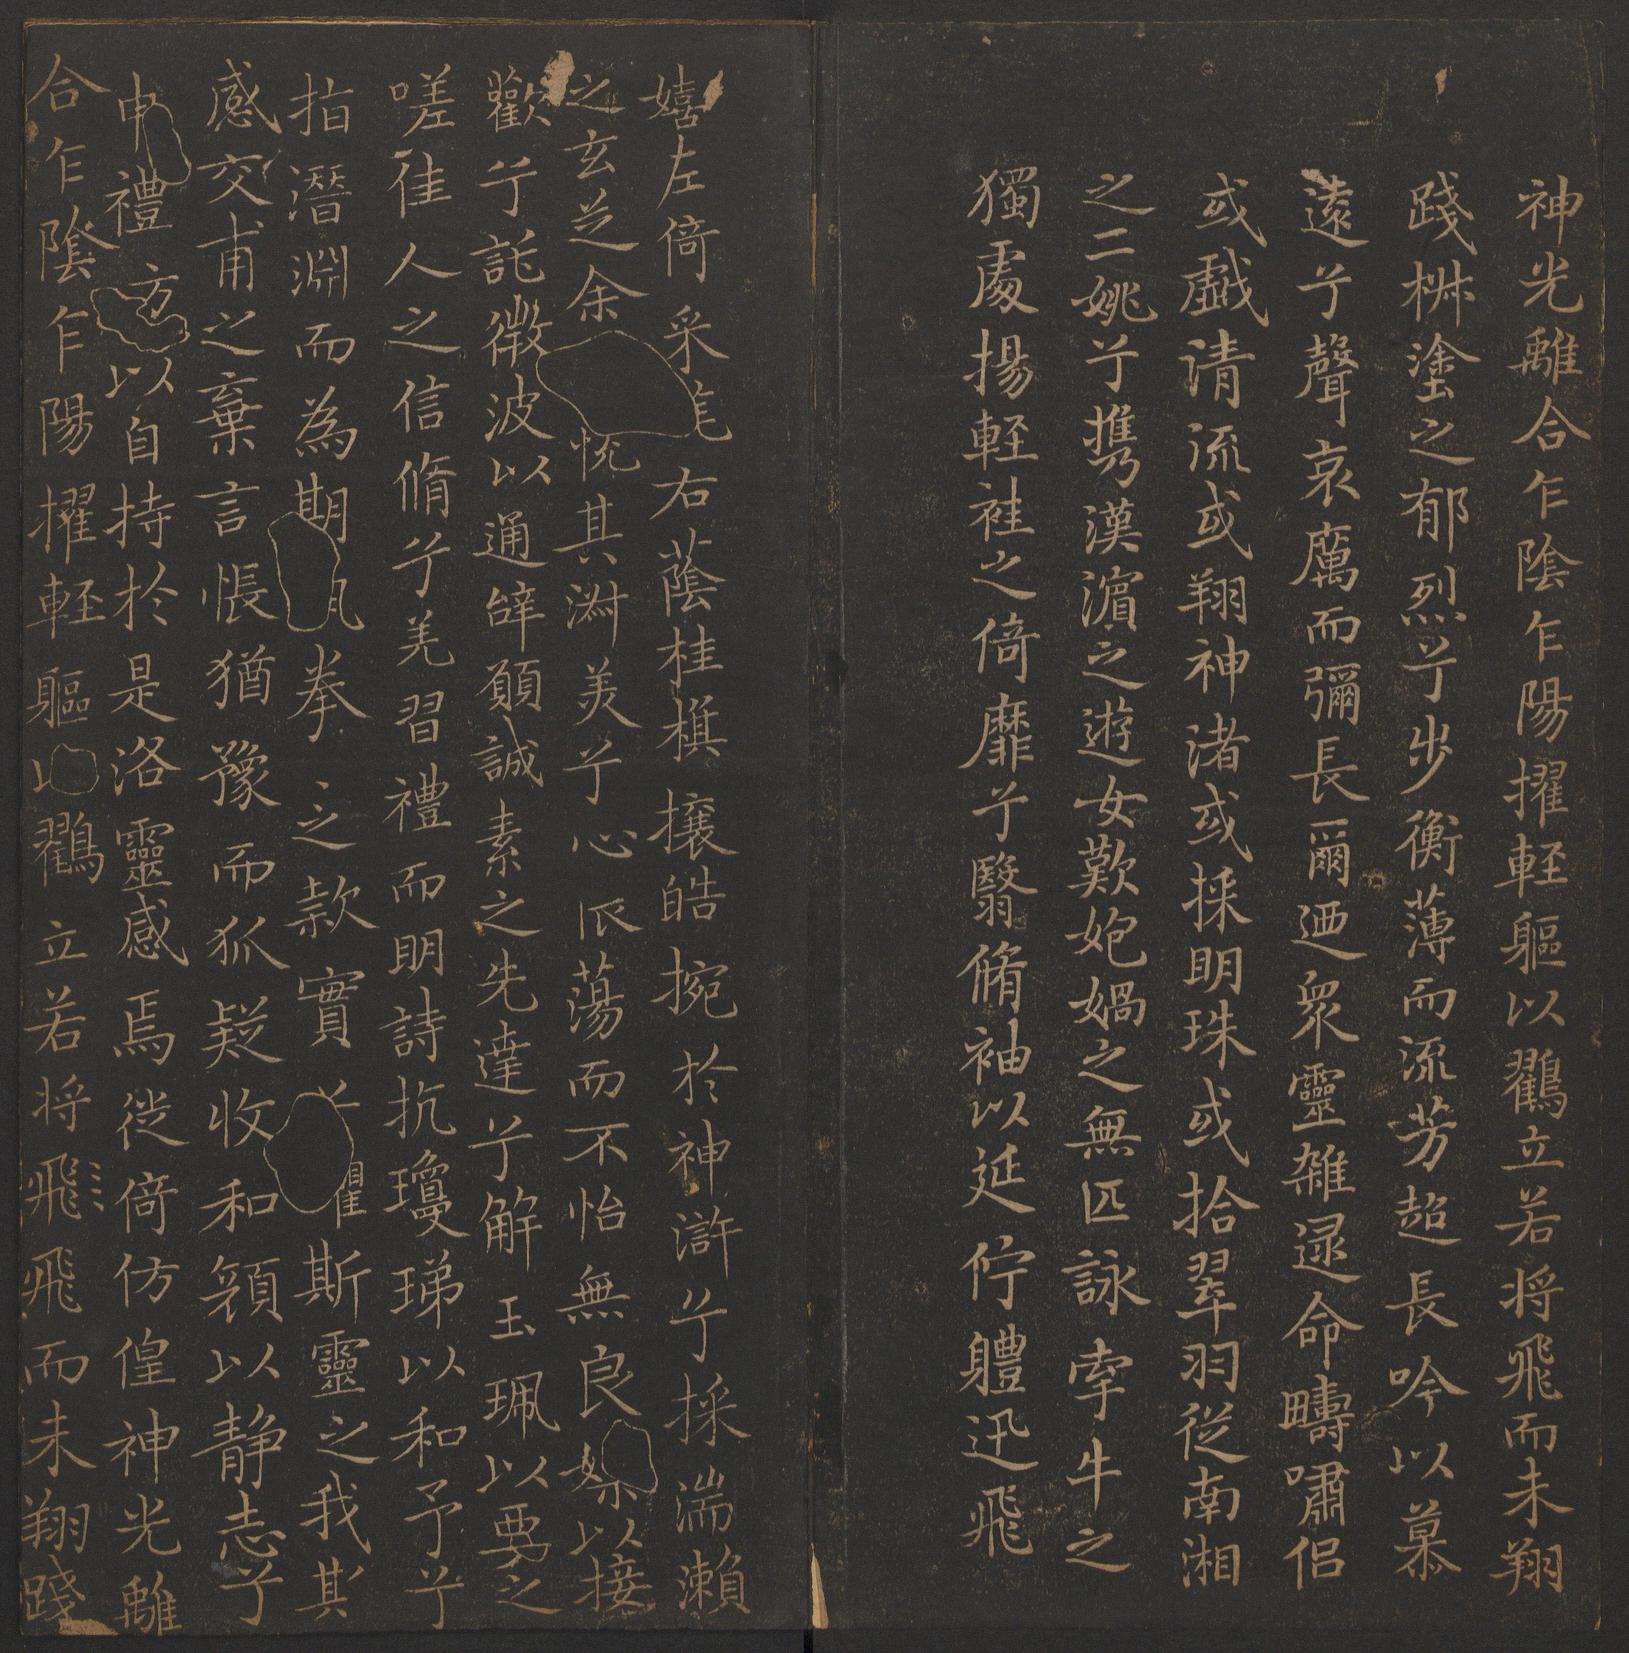 神光離合乍陰乍陽擢軽軀以鸛立若将飛而未翔
踐椒塗之郁烈兮步衡薄而流芳超長吟以慕
遠兮聲哀厲而彌長爾迺衆靈雜遝命疇嘯侶
或戲清流或翔神渚或採明珠或拾翠羽従南湘
之二姚兮携漢濵之遊女歎匏媧之無匹詠牽牛之
獨處揚軽袿之倚靡兮翳脩袖以延佇軆迅飛
嬉左倚采旄右蔭桂旗攘皓捥於神滸兮採湍瀨
之玄芝余悦其淑美兮心振蕩而不怡無良媒以接
歡兮託微波以通辭願誠素之先達兮解玉珮以要之
嗟佳人之信脩兮羌習禮而明詩抗瓊珶以和予兮
指潛淵而為期執拳之款實兮懼斯靈之我欺
感交甫之棄言悵猶豫而狐疑收和顏以静志兮
申禮防以自持於是洛靈感焉徙倚仿偟神光離
合乍陰乍陽擢軽軀以鸛立若将飛飛而未翔踐